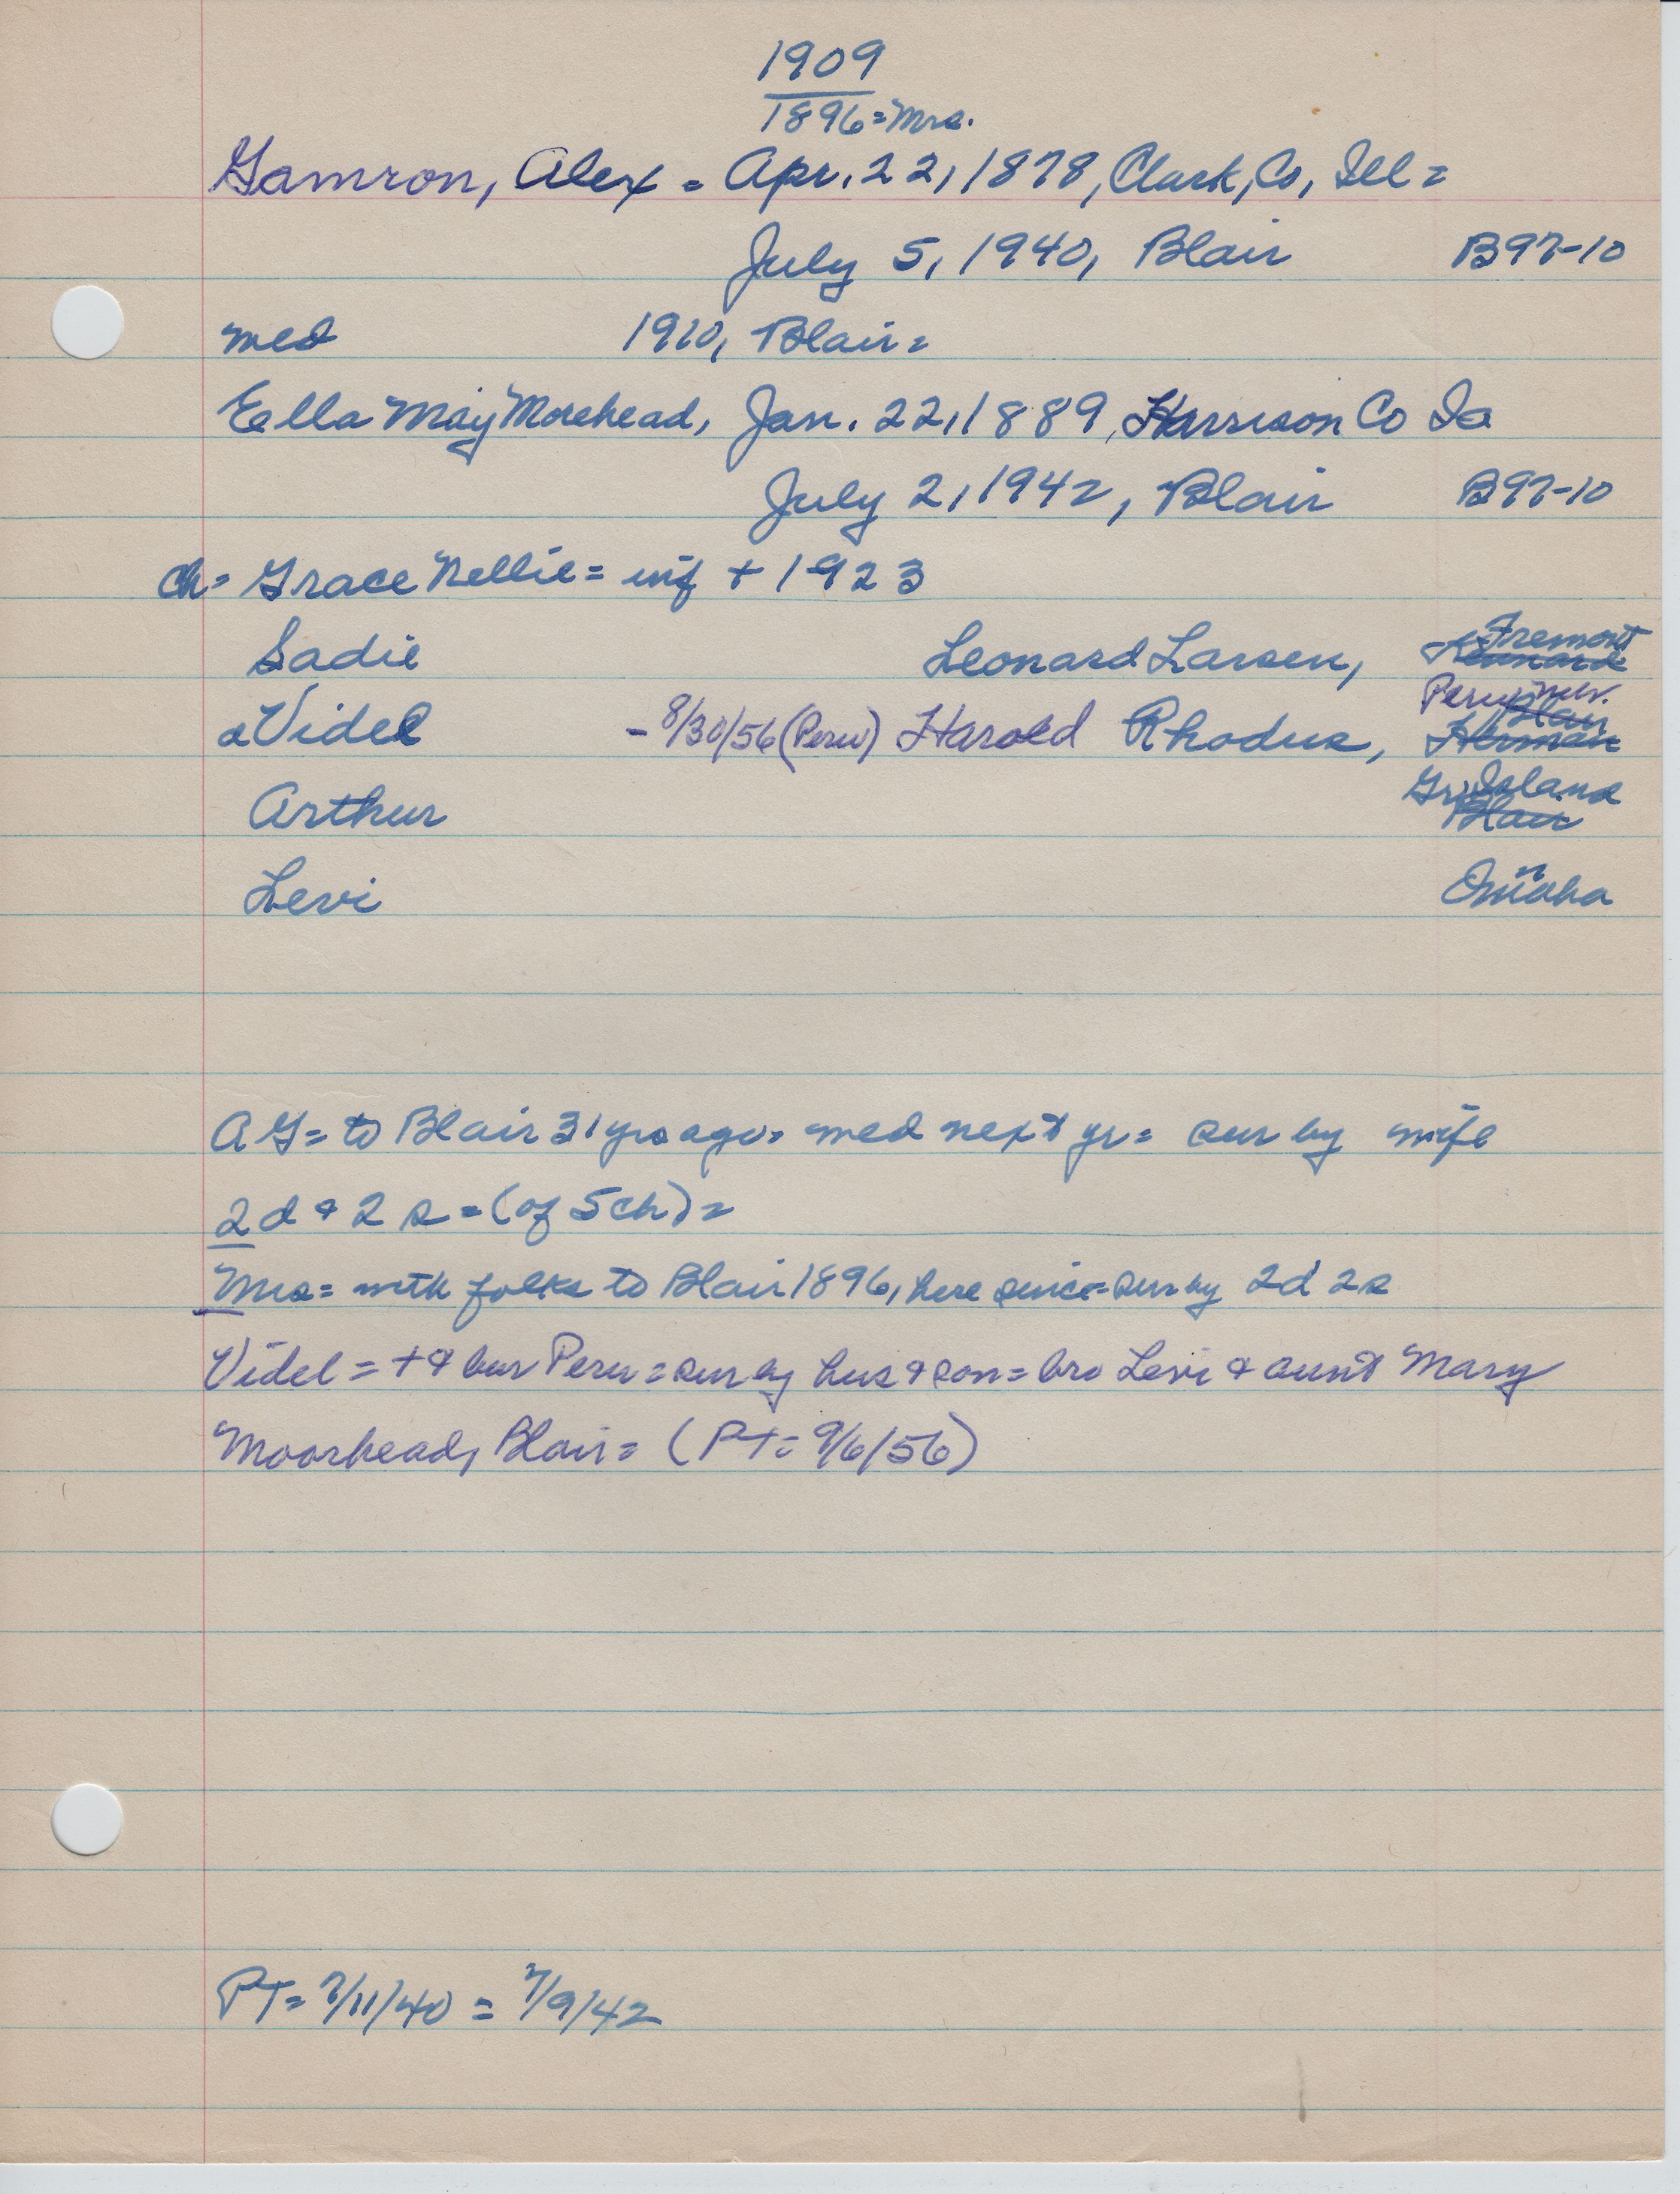 1909
1896=Mrs.
Gamron, Alex = Apr. 22, 1878, Clark, Co, Ill =
July 5, 1940, Blair B97-10
med 1910, Blair=
Eella May Morehead, Jan. 22, 1889, Harrison Co Ia
July 2, 1942, Blair B97-10
ch= Grace Nellie= inf + 1923
Fremont
Sadie Leonard Larsen, Kennard
Peru, Blair
Videl - 8/30/56 (Peru) Harold Rhodus, Herman
Gr Island
Arthur Blair
Levi Omaha
AG= to Blair 31 yrs ago= med next yr= sur by wife
2d & 2s=(of 5ch)=
Mrs= with folks to Blair 1896, here since=sur by 2d 2s
Videl = + & bur Peru = sur by hus & son= bro Levi & aunt Mary
Moorhead, Blair= (PT= 9/6/56)
PT= 7/11/40 = 7/9/42